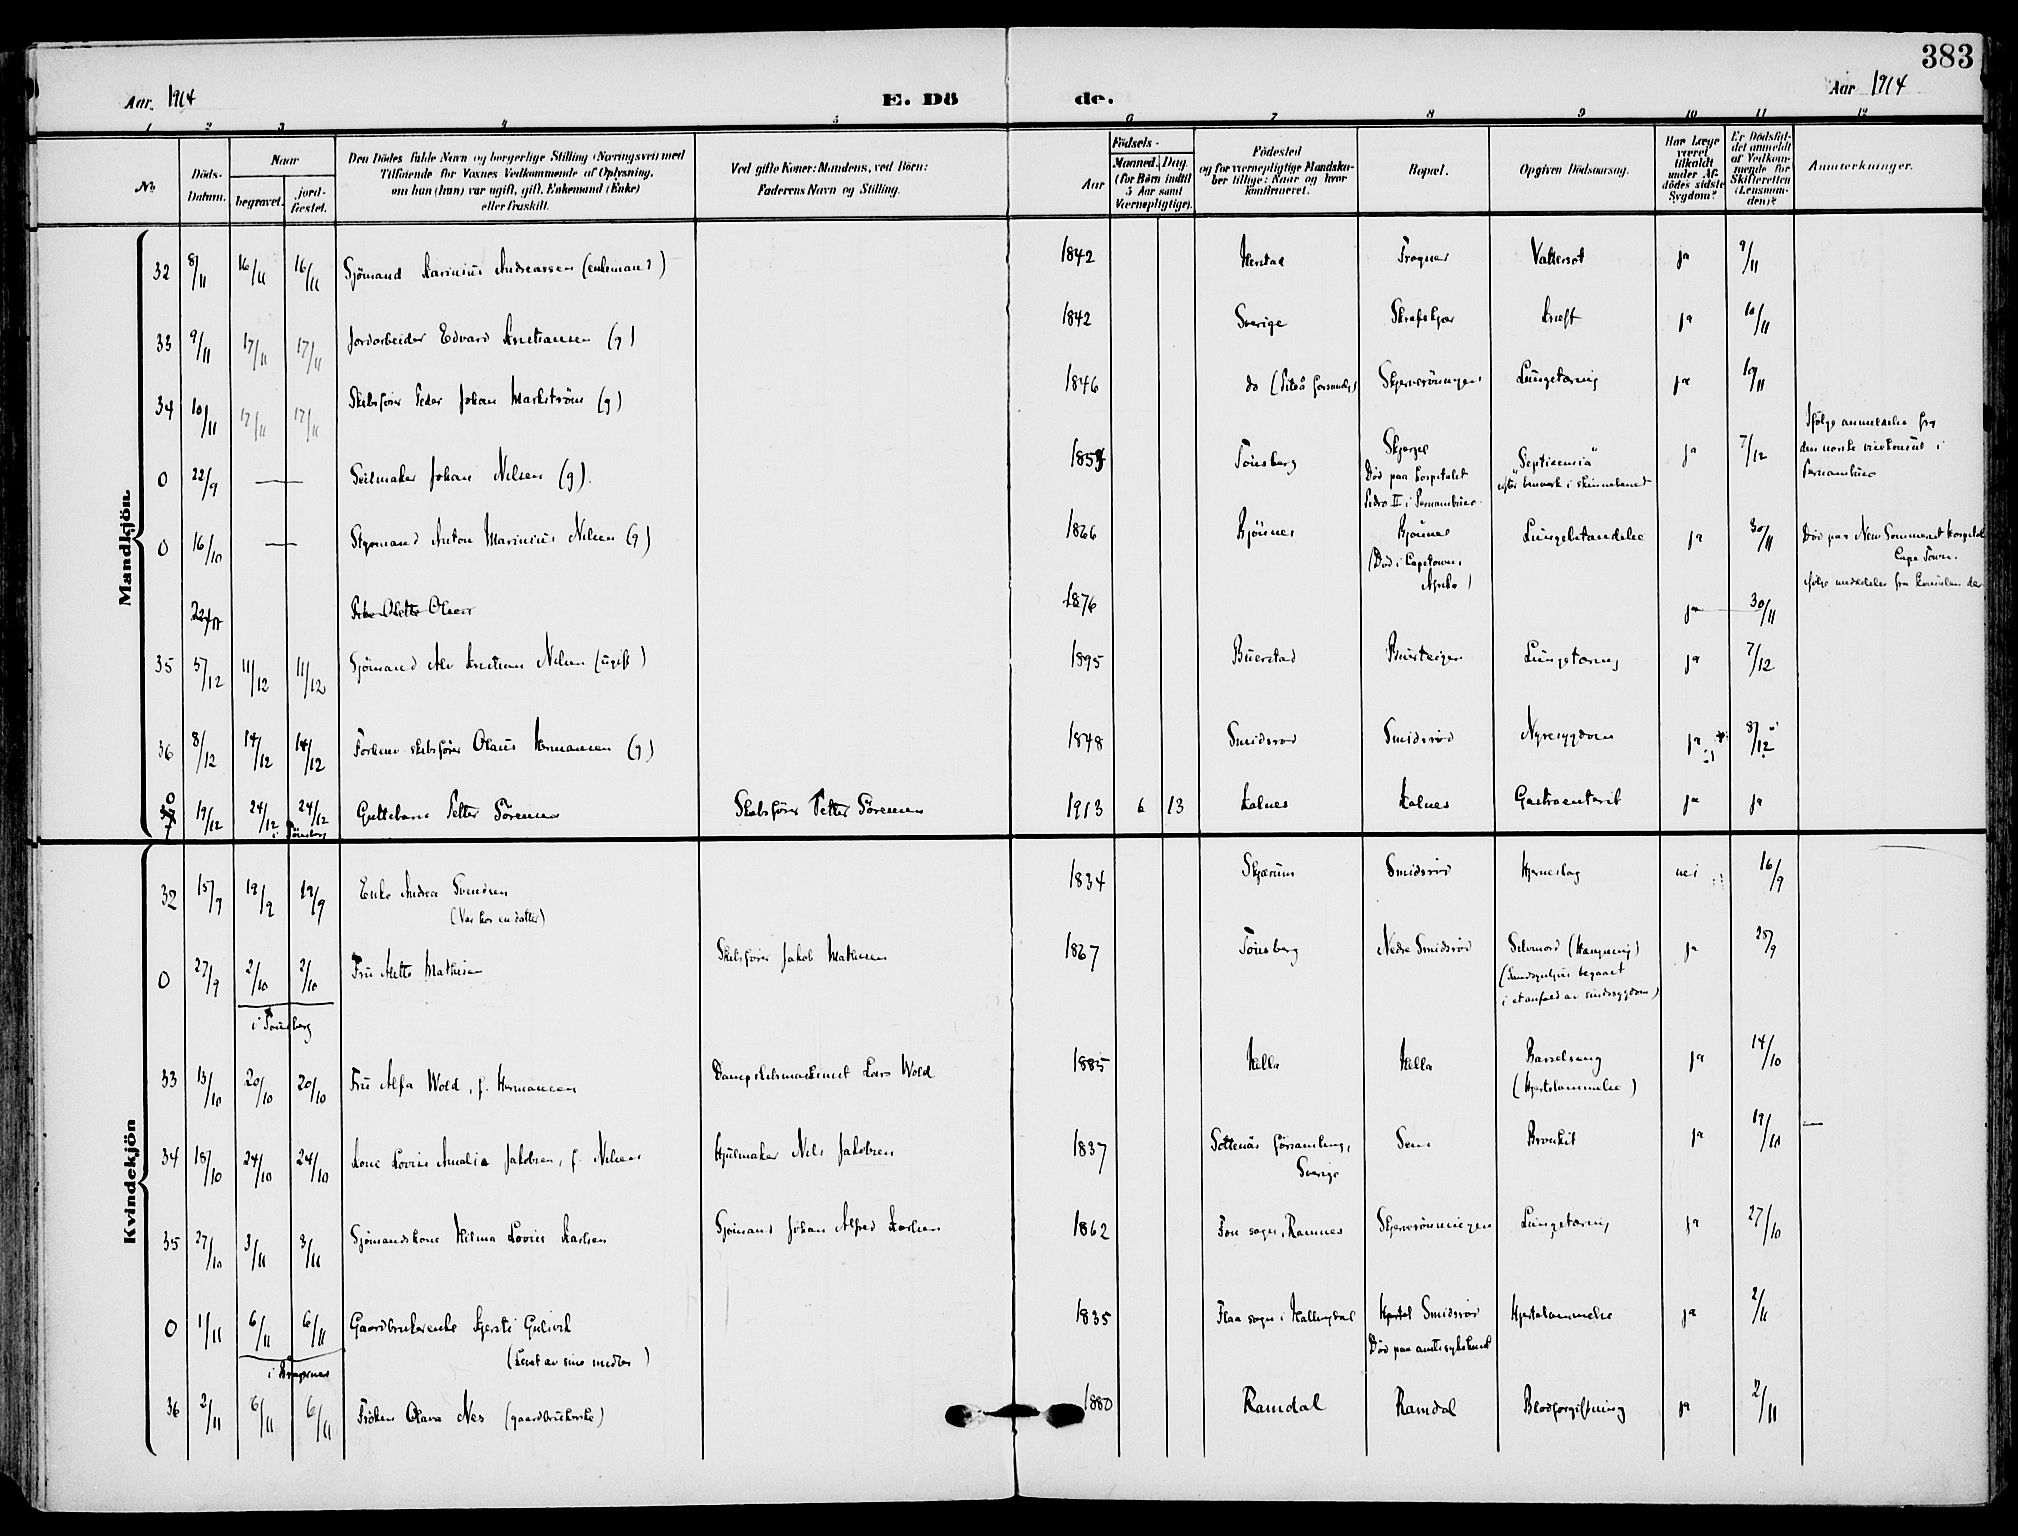 383
Aar. 1914
E. Dö
de.
Aar 1914
1 2 3 4 5 6 7 8 9 10 11 12
No
Döds-Datum.
Naar
begravet.
jord-fæstet.
Den Dödes fulde Navn og borgerlige Stilling (Næringsvei) med
Tilföiende for Voxnes Vedkommende af Oplysning,
om han (hun) var ugift, gift, Enkemand (Enke)
eller fraskilt.
Ved gifte Koner: Mandens, ved Börn:
Faderens Navn og Stilling.
Födsels-
Aar
Maaned. Dag.
(for Börn indtil
5 Aar samt
Værnepligtige).
Födested
og for værnepligtige Mandska-
ber tillige: Naar og hvor
konfirmeret.
Bopæl.
Opgiven Dödsaarsag.
Har Læge
været
tilkaldt
under Af-
dödes sidste
Sygdom?
Er Dödsfal-
det anmeldt
af Vedkom-
mende for
Skifteretten
(Lensman-
den)?
Anmærkninger.
Mandkjön
32 8/11 16/11 16/11 Sjömand Karinius Andreassen (enkemand) 1842 Herstad Frogner Vattersot ja 9/11
33 9/11 17/11 17/11 Jordarbeider Edvard Kristiansen (g) 1842 Sverige Kræft ja 10/11
34 10/11 17/11 17/11 Skibsfører Peder Johan Markström (g) 1846 do (Piteå forsamlg) Lungetæring ja 10/11
0 22/9 — Seilmaker Johan Nilsen (g). 1854 Tønsberg
Død paa hospitalet
Pedro II i Pernambuco.
"Septicemia"
efter benværk i skinnebenet
ja 7/12
Ifølge anmeldelse fra
den norske vicekonsul i
Pernambuco
0 16/10 — Styrmand Anton Marinius Nilsen (g) 1866 Bjønnes Bjønnes
(Død i Capetown,
Afrika)
Lungebetændelse ja 30/11
Død paa New Sommerset hospital
Cape Town.
ifølge meddelelse fra konsulen der
22/11 Olette Olsen 1876 ja 30/11
35 5/12 11/12 11/12 Sjömand Alv Kristian Nilsen (ugift) 1895 Buerstad Lungetæring ja 7/12
36 8/12 14/12 14/12 Forhenv. skibsfører Olaus Hermansen (g) 1848 Smidsrød Smidsrød Nyresygdom ja 8/12
0 19/12 24/12 24/12
i Tønsberg
Guttebarn Petter Sörensen Skibsfører Petter Sörensen 1913 6 13 Kalnes Kalnes Gastroenterit ja ja
Kvindekjön
32 15/9 19/9 19/9 Enke Andrea Svendsen
(Var hos en datter)
1834 Skjærum Smidsrød Hjerneslag nei 16/9
0 27/9 2/10 2/10
i Tønsberg
Fru Mathisen Skibsfører Jakob Mathisen 1867 Tønsberg Nedre Smidsrød Selvmord (Hængning)
(Sandsynligvis begaaet
i et anfald av sindssygdom)
ja 28/9
33 13/10 20/10 20/10 Fru Alfa Wold, f. Hermansen Dampskibsmaskinist Lars Wold 1885 Hella Hella Barselseng
(Hjertelammelse)
ja 14/10
34 18/10 24/10 24/10 Kone Lovise Amalia Jakobsen, f. Nilsen Hjulmaker Nils Jakobsen 1837 Sottenäs församling,
Sverige
Sem Bronkit ja 19/10
35 27/10 3/11 3/11 Sjömandskone Hilma Lovise Karlsen Sjömand Johan Alfred Karlsen 1862 Fon sogn, Ramnes Lungetæring ja 27/10
0 1/11 6/11 6/11
Gaardbrukerenke Kjersti Gulsvik
1835 Flaa sogn i Hallingdal Smidsrød
Død paa amtssykehuset
Hjertelammelse ja 2/11
36 2/11 6/11 6/11 Frøken Olava Nes (gaardbrukerske) 1880 Ramdal Ramdal Blodforgiftning ja 2/11